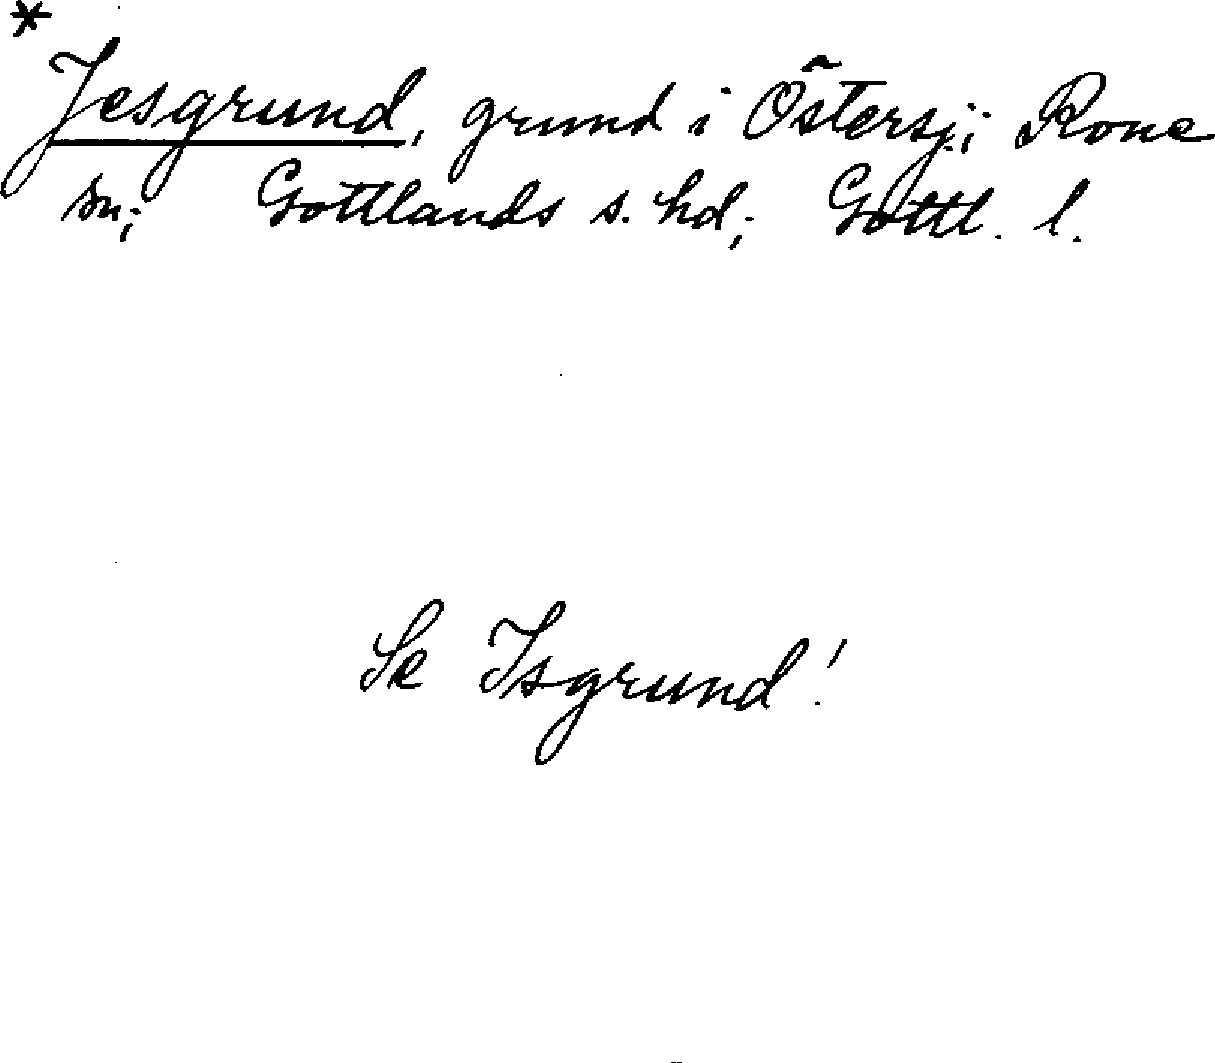 *
Jesgrund, grund i Östersj.; Rone
sn; Gottlands s. hd; Gottl. l.
Se Isgrund!